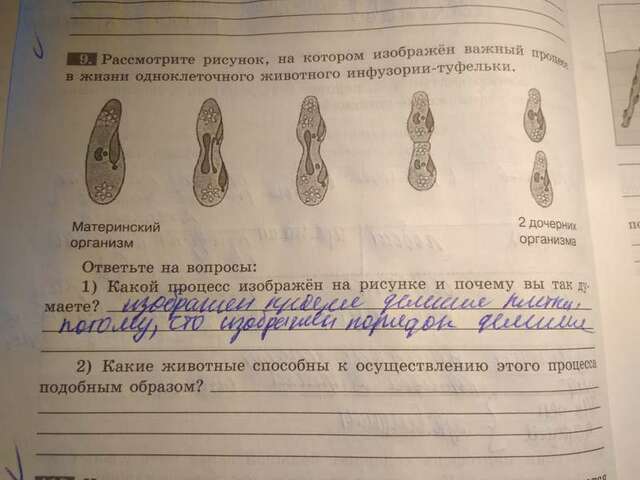 9. Рассмотрите рисунок, на котором изображён важный процесс
в жизни одноклеточного животного инфузории-туфельки.
Материнский
организм
2 дочерних
организма
Ответьте на вопросы:
1) Какой процесс изображён на рисунке и почему вы так ду-
маете? изображен процесс деления клетки,
потому, что изображён порядок деления
2) Какие животные способны к осуществлению этого процесса
подобным образом?